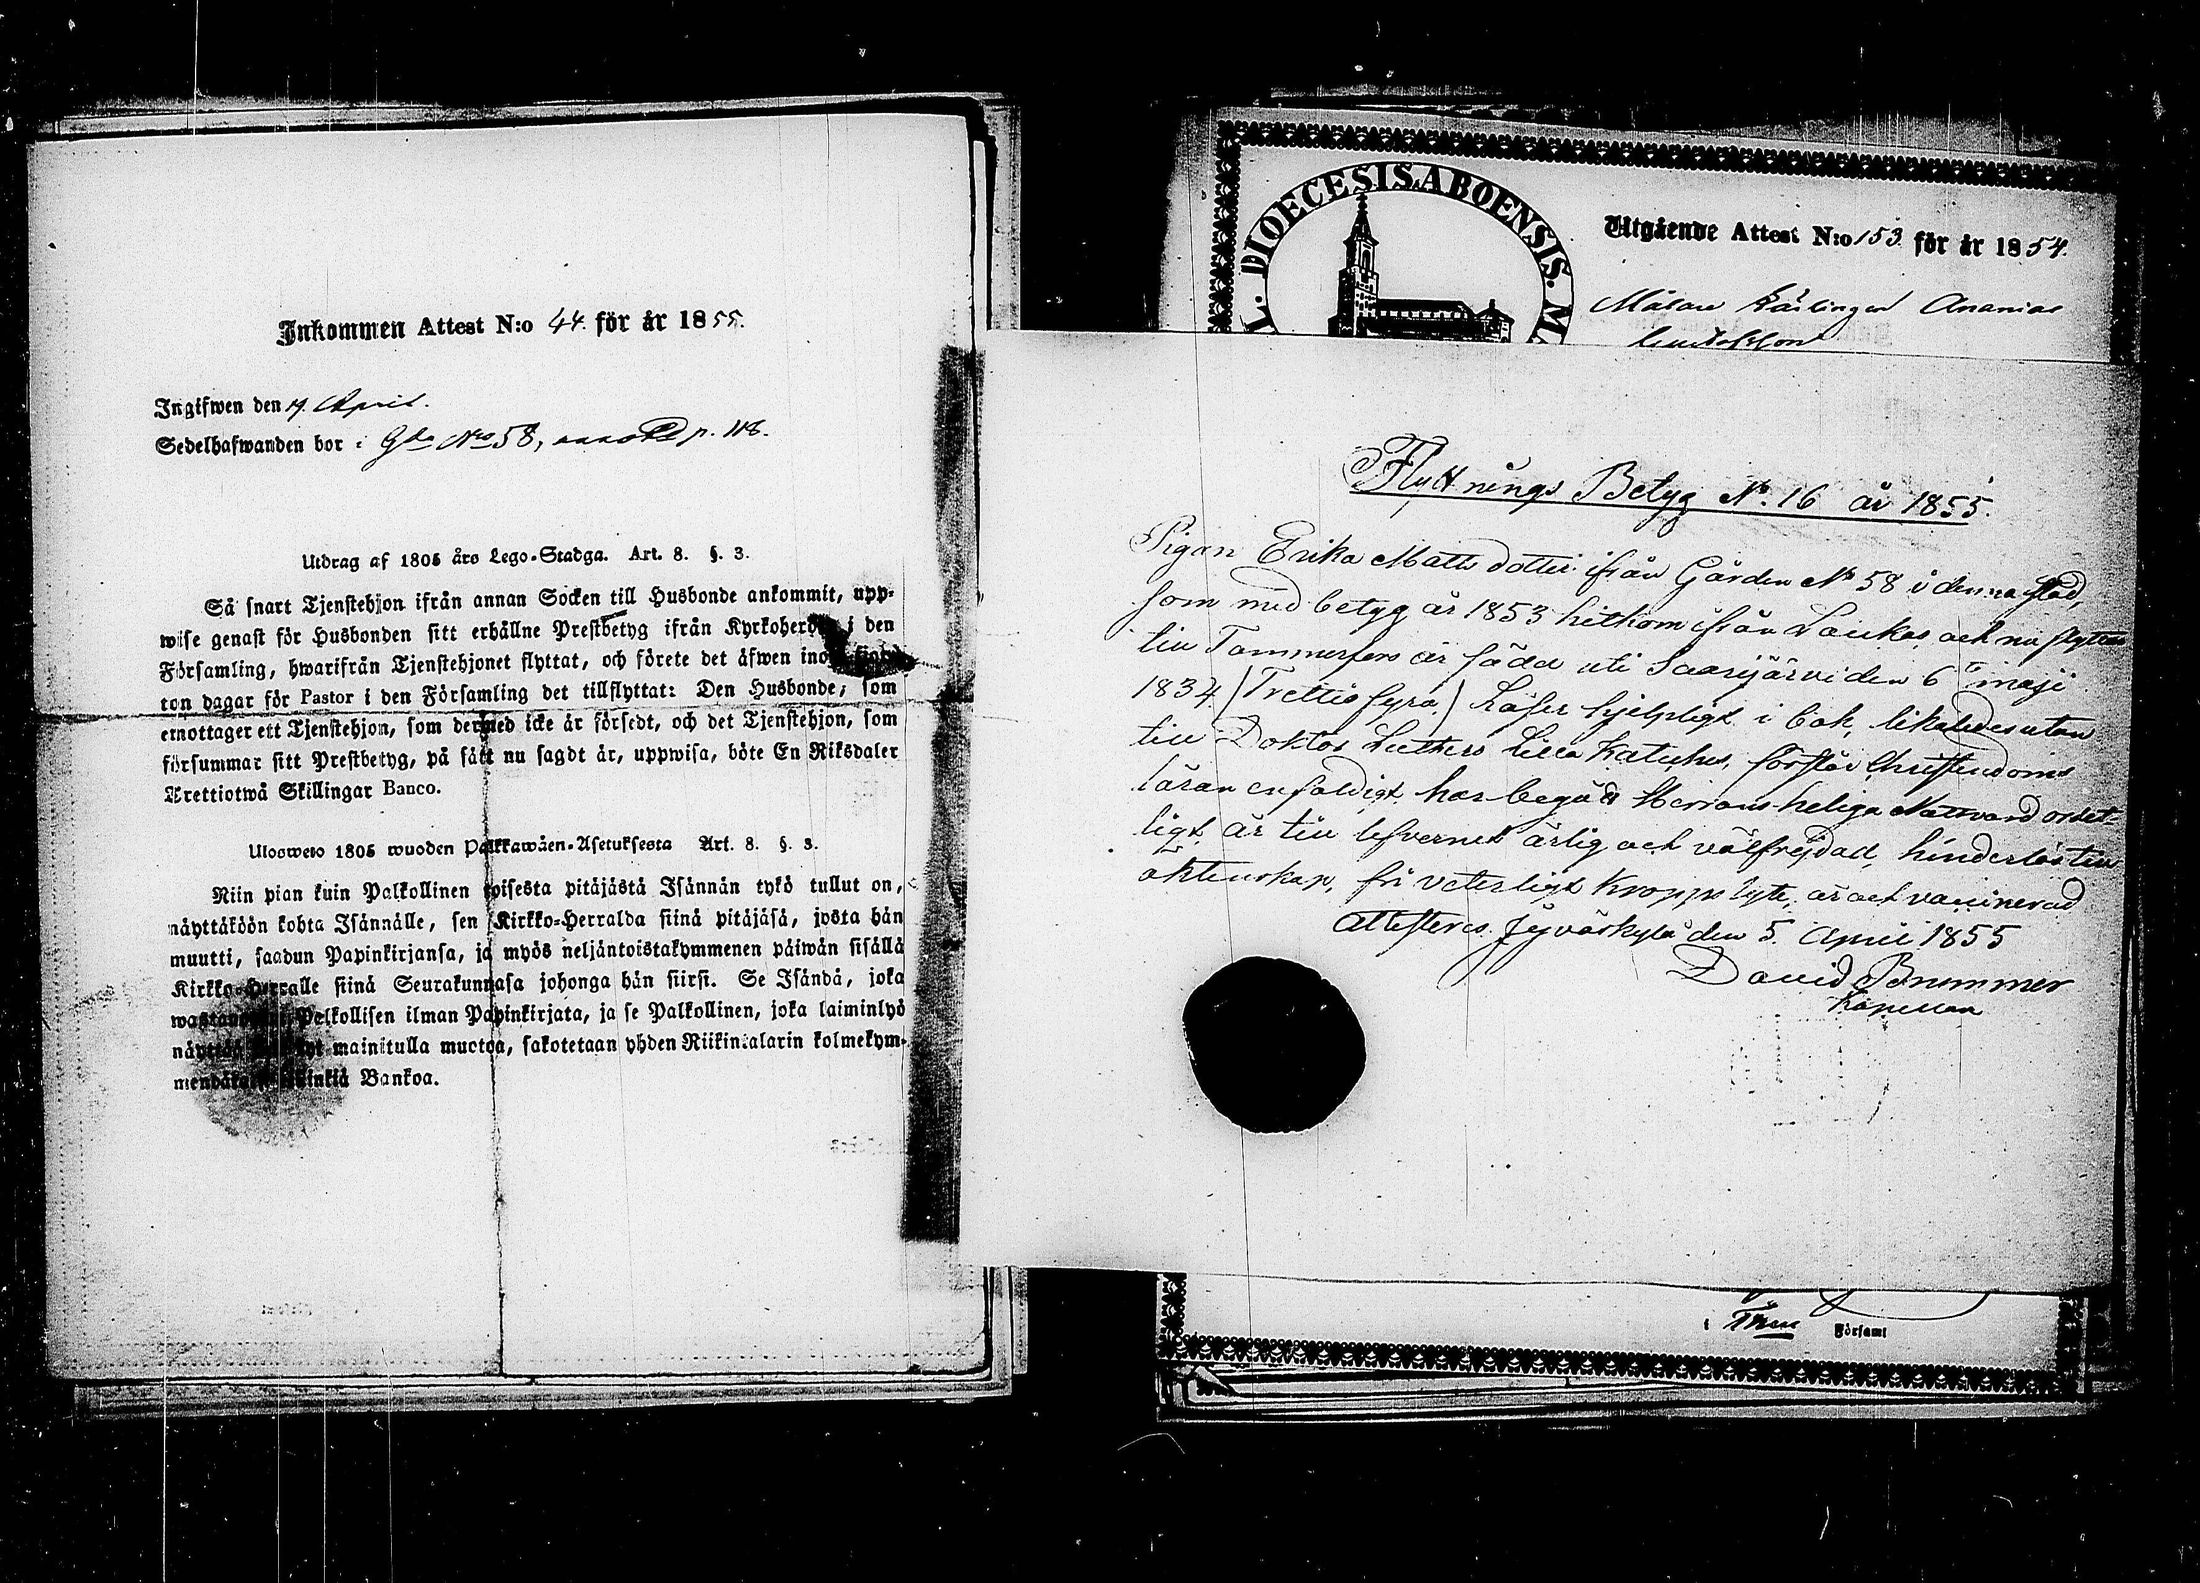 Inkommen Attest N:o 44. för år 1855.
Ingifwen den 19. April.
Sedelhafwanden bor i Gdn No 58, p. 118.
Utdrag af 1805 års Lego-Stadga. Art. 8. §. 3.
Så snart Tjenstehjon ifrån annan Socken till Husbonde ankommit, upp-
wise genast för Husbonden sitt erhållne Prestbetyg ifrån Kyrkoherden i den
Församling, hwarifrån Tjenstehjonet flyttat, och förete det äfwen inom
ton dagar för Pastor i den Församling det tillflyttat: Den Husbonde, som
emottager ett Tjenstehjon, som dermed icke är försedt, och det Tjenstehjon, som
försummar sitt Prestbetyg, på sätt nu sagdt är, uppwisa, böte En Riksdaler
Trettiotwå Skillingar Banco.
Ulosweto 1805 wuoden Palkkawäen-Asetuksesta Art. 8. §. 3.
Niin pian kuin Palkollinen toisesta pitäjästä Isännän tykö tullut on,
näyttäköön kohta Isännälle, sen Kirkko-Herralda siinä pitäjäsä, josta hän
muutti, saadun Papinkirjansa, ja myös neljäntoistakymmenen päiwän sisällä
Kirkko-Herralle siinä Seurakunnasa johonga hän siirsi. Se Isändä, joka
Palkollisen ilman Papinkirjata, ja se Palkollinen, joka laiminlyö
mainitulla muotoa, sakotetaan yhden Riikintalarin kolmekym-
Bankoa.
L. DIOECESIS ABOENSIS. MA
Utgående Attest N:o 153. för år 1854.
Målare Ananias
Gustafsson
Flyttnings Betyg No. 16 år 1855.
Pigan Erika Matts dotter ifrån Gården No 58 i denna stad,
som med betyg år 1853 hitkom ifrån Laukas, och nu flyttar
till Tammerfors är född uti Saarijärvi den 6 maji
1834 /Trettiofyra/ Läser hjelpligt i bok, likaledes utan
till Doktor Luthers Lilla Kateches, förstår Christendoms
läran enfaldigt, har begått Herrans heliga Nattvard ordet-
ligt, är till lefvernet ärlig och välfrejdad, hinderlös till
äktenskap, fri veterligt kroppslyte, är ock vaccinerad
attesteras. Jyväskylä den 5. April 1855
David Brummer
Kapellan
i Församl